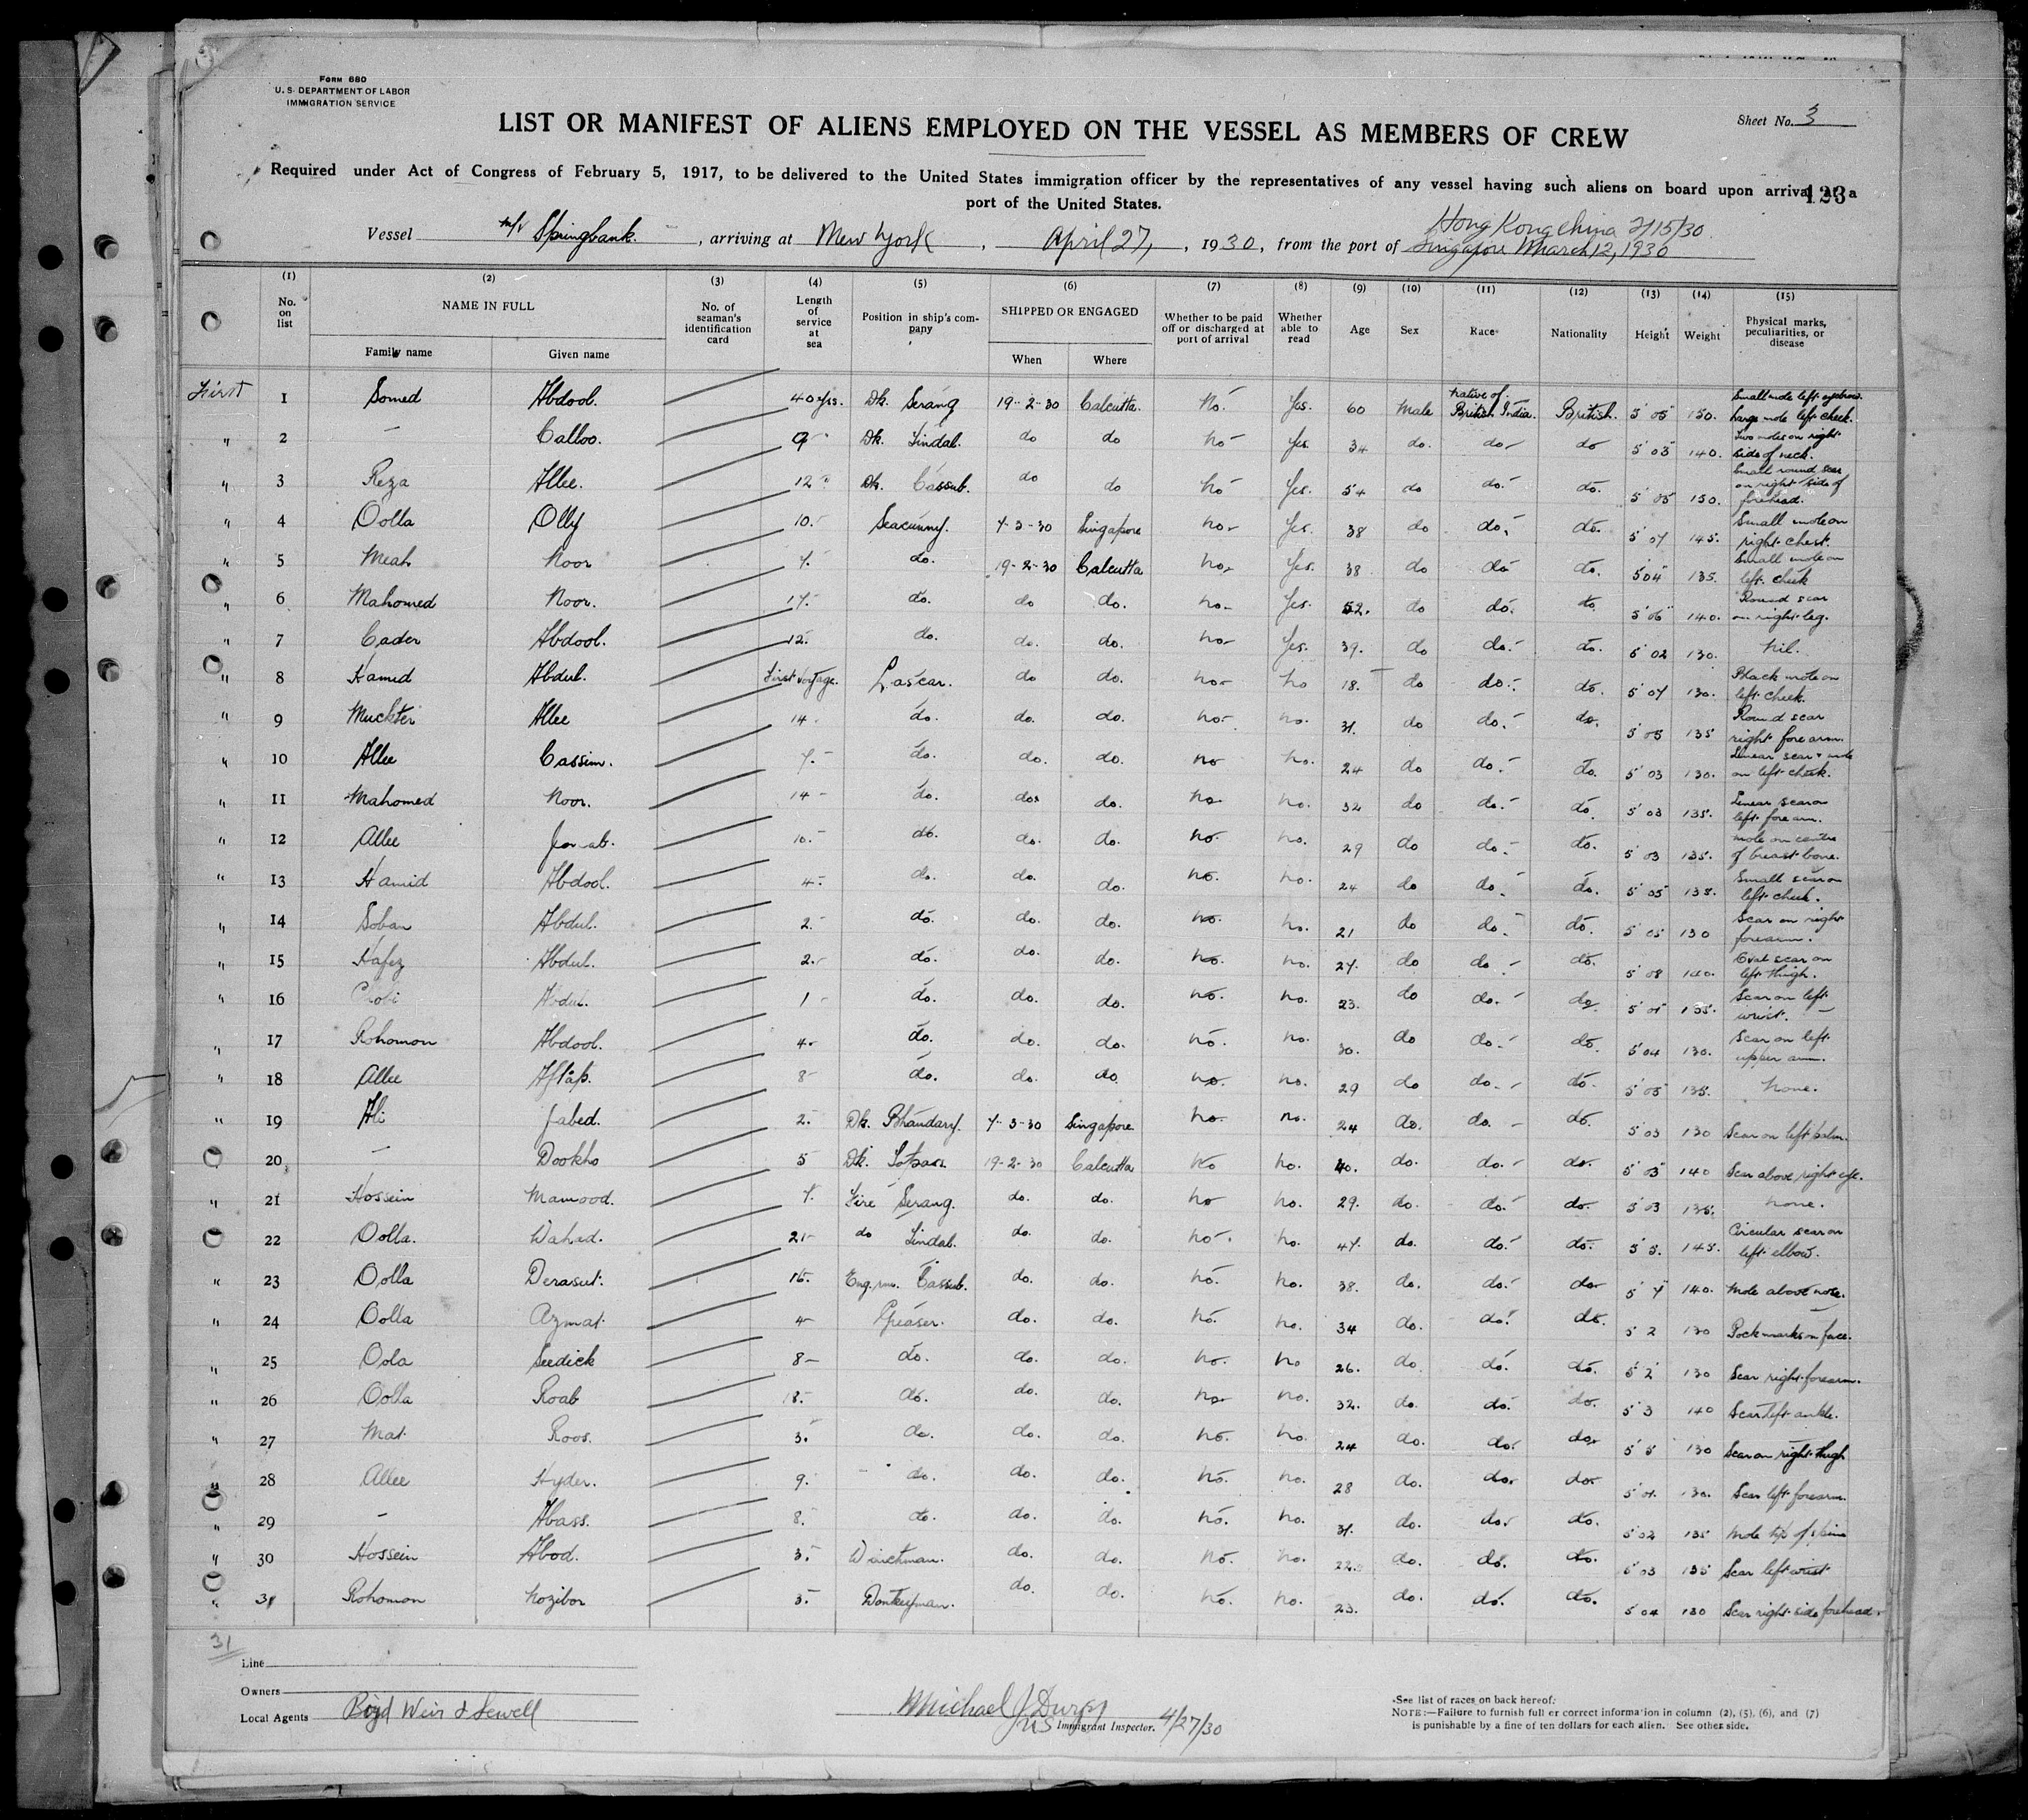 Form 680
U. S. DEPARTMENT OF LABOR
IMMIGRATION SERVICE
LIST OR MANIFEST OF ALIENS EMPLOYED ON THE VESSEL AS MEMBERS OF CREW
Sheet No. 3
Required under Act of Congress of February 5, 1917, to be delivered to the United States immigration officer by the representatives of any vessel having such aliens on board upon arrival at a
port of the United States.
123
Vessel m/v Springbank., arriving at New York, April 27, 1930, from the port of Hong Kong China 2/15/30
Singapore March 12, 1930
(1) (2) (3) (4) (5) (6) (7) (8) (9) (10) (11) (12) (13) (14) (15)
No. on list NAME IN FULL No. of seaman's identification card Length of service at sea Position in ship's company SHIPPED OR ENGAGED Whether to be paid off or discharged at port of arrival Whether able to read Age Sex Race Nationality Height Weight Physical marks, peculiarities, or disease
Family name Given name When Where
First 1 Somed Abdool. 40 yrs. Dk. Serang 19-2-30 Calcutta. No. Yes. 60 Male native of British India. British. 5 05 150. Small mole left eyebrow. Large mole left cheek.
" 2 — Calloo. 9 " Dk. Tindal. do do No Yes 34 do. do do 5 03 140. Two moles on right side of neck.
" 3 Reza Allee. 12 " Dk. Cassub. do do No Yes. 54 do do. do. 5 05 150. Small round scar on right side of forehead.
" 4 Oolla Olly 10. Seacunny. 7-3-30 Singapore No Yes. 38 do do. do. 5 07 145. Small mole on right chest.
" 5 Meah Noor 7. do. 19-2-30 Calcutta No Yes. 38 do do do. 5 04 135. Small mole on left cheek
" 6 Mahomed Noor. 17. do. do do. No Yes. 52. do do. do 5 06 140. Round scar on right leg.
" 7 Cader Abdool. 12. do. do. do. No Yes. 39. do do. do. 5 02 130. Nil.
" 8 Hamid Abdul. First voyage. Lascar. do do. No No 18. do do. do. 5 07 130. Black mole on left cheek.
" 9 Muckter Allee 14. do. do. do. No No. 31. do do. do. 5 05 135 Round scar right fore arm.
" 10 Allee Cassim. 7. do. do. do. No No. 24 do do. do. 5 03 130. Linear scar & mole on left cheek.
" 11 Mahomed Noor. 14 do. do. do. No No. 32 do do. do. 5 03 135. Linear scar on left fore arm.
" 12 Allee Jonab. 10. do. do. do. No. No. 29 do do. do. 5 03 135. Mole on centre of breast bone.
" 13 Hamid Abdool. 4. do. do. do. No. No. 24 do do. do. 5 05 135. Small scar on left cheek.
" 14 Soban Abdul. 2. do. do. do. No. No. 21 do do. do. 5 05 130 Scar on right forearm.
" 15 Hafez Abdul. 2. do. do. do. No. No. 27. do do. do. 5 08 140. Oval scar on left thigh.
" 16 Abdul. 1 do. do. do. No. No. 23. do do. do. 135. Scar on left wrist.
" 17 Rohomon Abdool. 4. do. do. do. No. No. 30. do do. do. 5 04 130. Scar on left upper arm.
" 18 Allee Aftap. 8 do. do. do. No. No. 29 do do. do. 5 05 135. None.
" 19 Ali Jabed. 2. Dk. Bhandary. 7-3-30 Singapore. No. No. 24 do. do. do. 5 03 130 Scar on left palm.
20 — Dookho 5 Dk. Topas. 19-2-30 Calcutta No No. 40. do. do. do. 5 05 140 Scar above right eye.
" 21 Hossein Mamood. 7. Fire Serang. do. do. No No. 29. do. do. do. 5 03 135. None.
22 Oolla. Wahed. 21 do Tindal. do. do. No. No. 47. do. do. do. 5 5. 145. Circular scar on left elbow.
" 23 Oolla Derasut. 15. Eng. rm. Cassub. do. do. No. No. 38. do. do. do 5 7 140. Mole above nose.
" 24 Oolla Azmat. 4 Greaser. do. do. No. No. 34 do. do. do. 5 2 130 Pock marks on face.
" 25 Oola Seedick 8 do. do. do. No. No 26. do. do. do. 5 2 130 Scar right forearm.
" 26 Oolla Roab 18. do. do. do. No No. 32. do. do. do. 5 3 140 Scar left ankle.
" 27 Mat Roos. 3. do. do. do. No. No. 24 do. do. do 5 5 130 Scar on right thigh
" 28 Allee Hyder. 9. do. do. do. No. No. 28 do. do. do 130. Scar left forearm.
" 29 — Abass. 8. do. do. do. No. No. 31. do. do. do. 5 02 135 Mole tip of spine
" 30 Hossein Abod. 3. Winchman. do. do. No. No. 22. do. do. do. 5 03 135 Scar left wrist
" 31 Rohomon Nozibor 3. Donkeyman. do. do. No. No. 23. do. do. do. 5 04 130 Scar right side forehead.
31
Line
Owners
Local Agents Boyd Weir & Sewell
Michael J.
US Immigrant Inspector. 4/27/30
See list of races on back hereof.
NOTE:—Failure to furnish full or correct information in column (2), (5), (6), and (7)
is punishable by a fine of ten dollars for each alien. See other side.